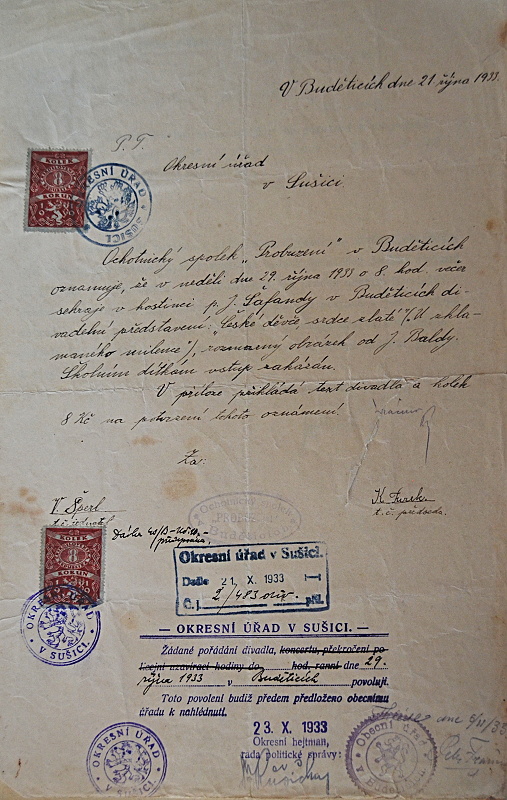 V Buděticích dne 21 října 1933.
P. T.
Okresní úřad
v Sušici.
KOLEK
8
KORUN
OKRESNÍ ÚŘAD
SUŠICI
Ochotnický spolek „Probuzení" v Buděticích
oznamuje, že v neděli dne 29. října 1933 o 8. hod. večer
sehraje v hostinci p. J. Šafandy v Buděticích di-
vadelní představení: „České děvče, srdce zlaté" /„U zkla-
maného milence"/, rozmarný obrázek od J. Baldy.
Školním dítkám vstup zakázán.
V příloze přikládá text divadla a kolek
8 Kč na potvrzení tohoto oznámení.
Za:
V. Šperl
t. č. jednatel
K. Turek
t. č. předseda.
Ochotnický
KOLEK
8
KORUN
Okresní úřad v Sušici.
Došlo 21. X. 1933
Č. j. 2/483 příl.
OKRESNÍ ÚŘAD
V SUŠICI.
— OKRESNÍ ÚŘAD V SUŠICI. —
Žádané pořádání divadla, koncertu, překročení po-
licejní uzavírací hodiny do hod. ranní dne 29.
října 1933 v Buděticích povoluji.
Toto povolení budiž předem předloženo obecnímu
úřadu k nahlédnutí.
23. X. 1933
Okresní hejtman,
rada politické správy:
OKRESNÍ ÚŘAD
V SUŠICI
Obecní úřad